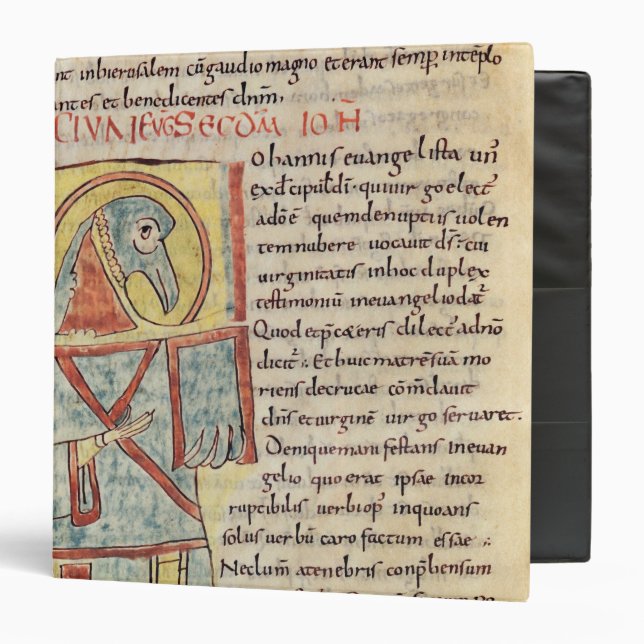 nt inhierusalem cũ gaudio magno et erant semp̃ intẽplo
antes et benedicentes dnm̃,
CIVN IEVG̃ SECDM̃ IOH̃
Ohannis evangelista un̄
ex dĩcipul'. dĩ. qui uir go elect'
adõe quem denuptiis uolen
tem nubere uocauit dr̄s: cui
uirginitatis inhoc duplex
testimoniũ in euangelio dat̃
Quod et p̃ cæteris dilect' adnõ
dicit̃: Et huic matrẽ suã mo
riens decrucae cõm̃dauit
dns̃ et uirginẽ uirgo seruaret.
Denique manifestans in euan
gelio quo erat ipsae incor
ruptibilis uerbi op' inquoans
solus uerbũ caro factum essae:
Neclum̃ atenebris conp̃hensum